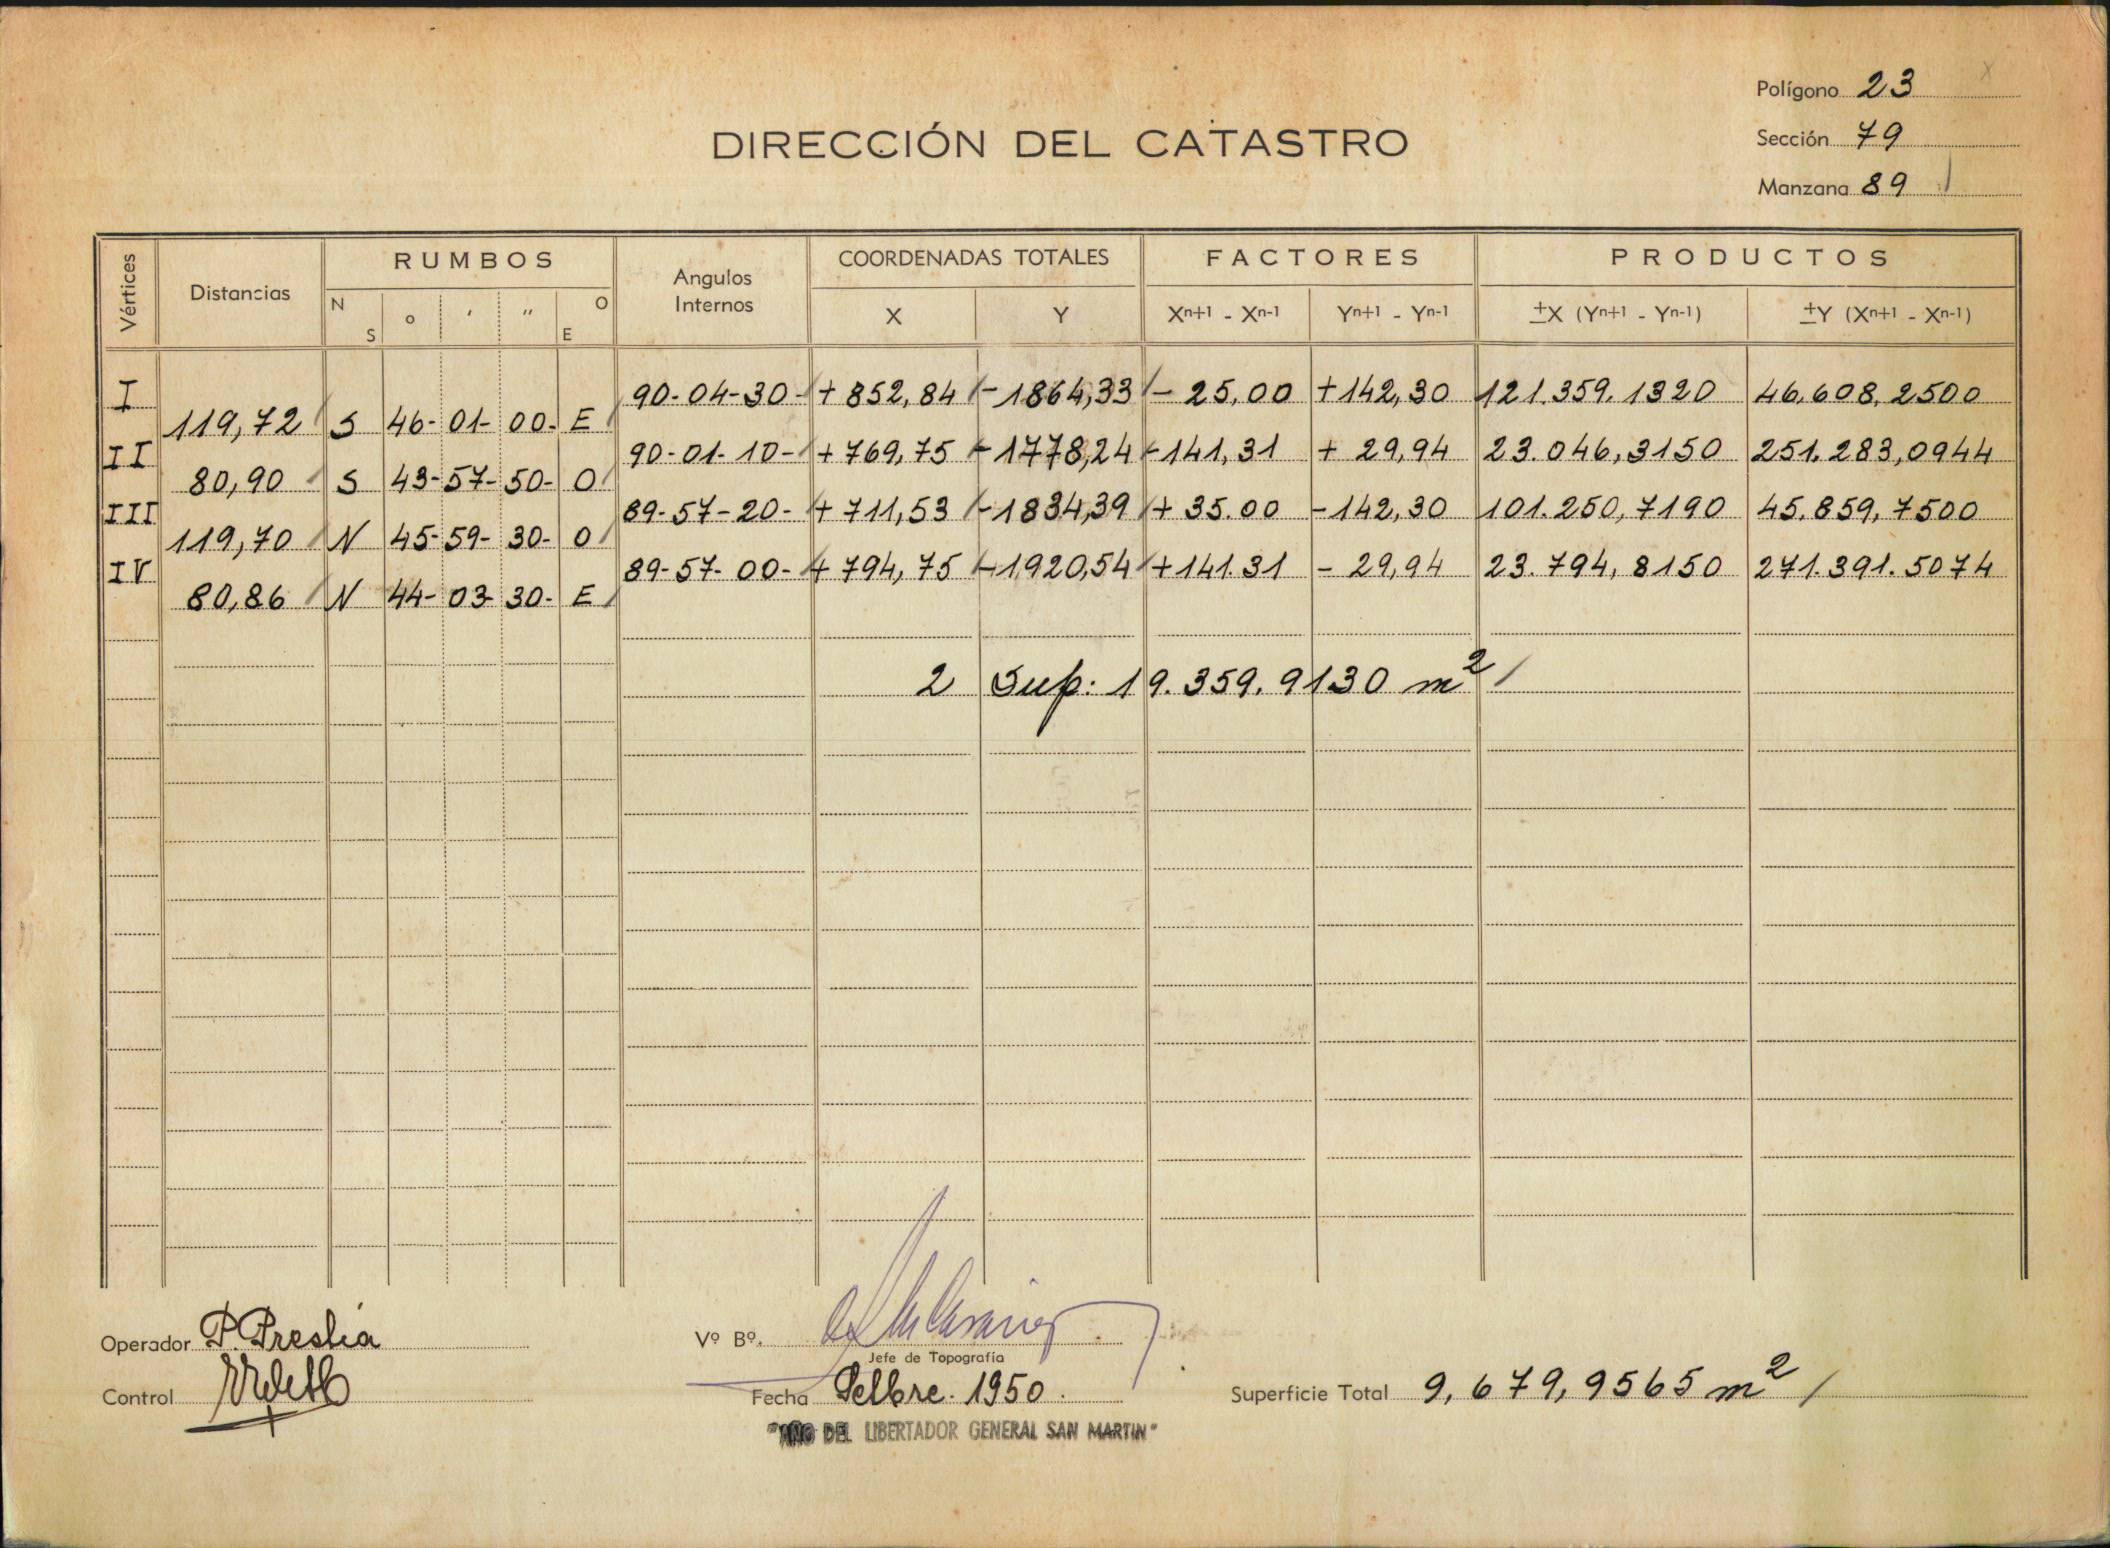 Polígono 23
DIRECCIÓN DEL CATASTRO
Sección 79
Manzana 89
Vértices Distancias RUMBOS Angulos Internos COORDENADAS TOTALES FACTORES PRODUCTOS
N S ° ' " O E X Y Xn+1 - Xn-1 Yn+1 - Yn-1 ±X (Yn+1 - Yn-1) ±Y (Xn+1 - Xn-1)
I 90-04-30- +852,84 -1864,33 - 25,00 +142,30 121.359.1320 46.608.2500
119,72 S 46- 01- 00- E
II 90-01-10- +769,75 -1778,24 -141,31 + 29,94 23.046,3150 251.283,0944
80,90 S 43-57-50- O
III 89-57-20- +711,53 -1834,39 + 35.00 -142,30 101.250,7190 45.859,7500
119,70 N 45-59-30- O
IV 89-57-00- +794,75 -1920,54 +141.31 - 29,94 23.794,8150 271.391.5074
80,86 N 44-03-30- E
2 Sup: 19.359.9130 m2
Operador P. Preslia
Vº Bº.
Jefe de Topografía
Control
Fecha Setbre. 1950.
Superficie Total 9,679,9565 m2
"AÑO DEL LIBERTADOR GENERAL SAN MARTIN"